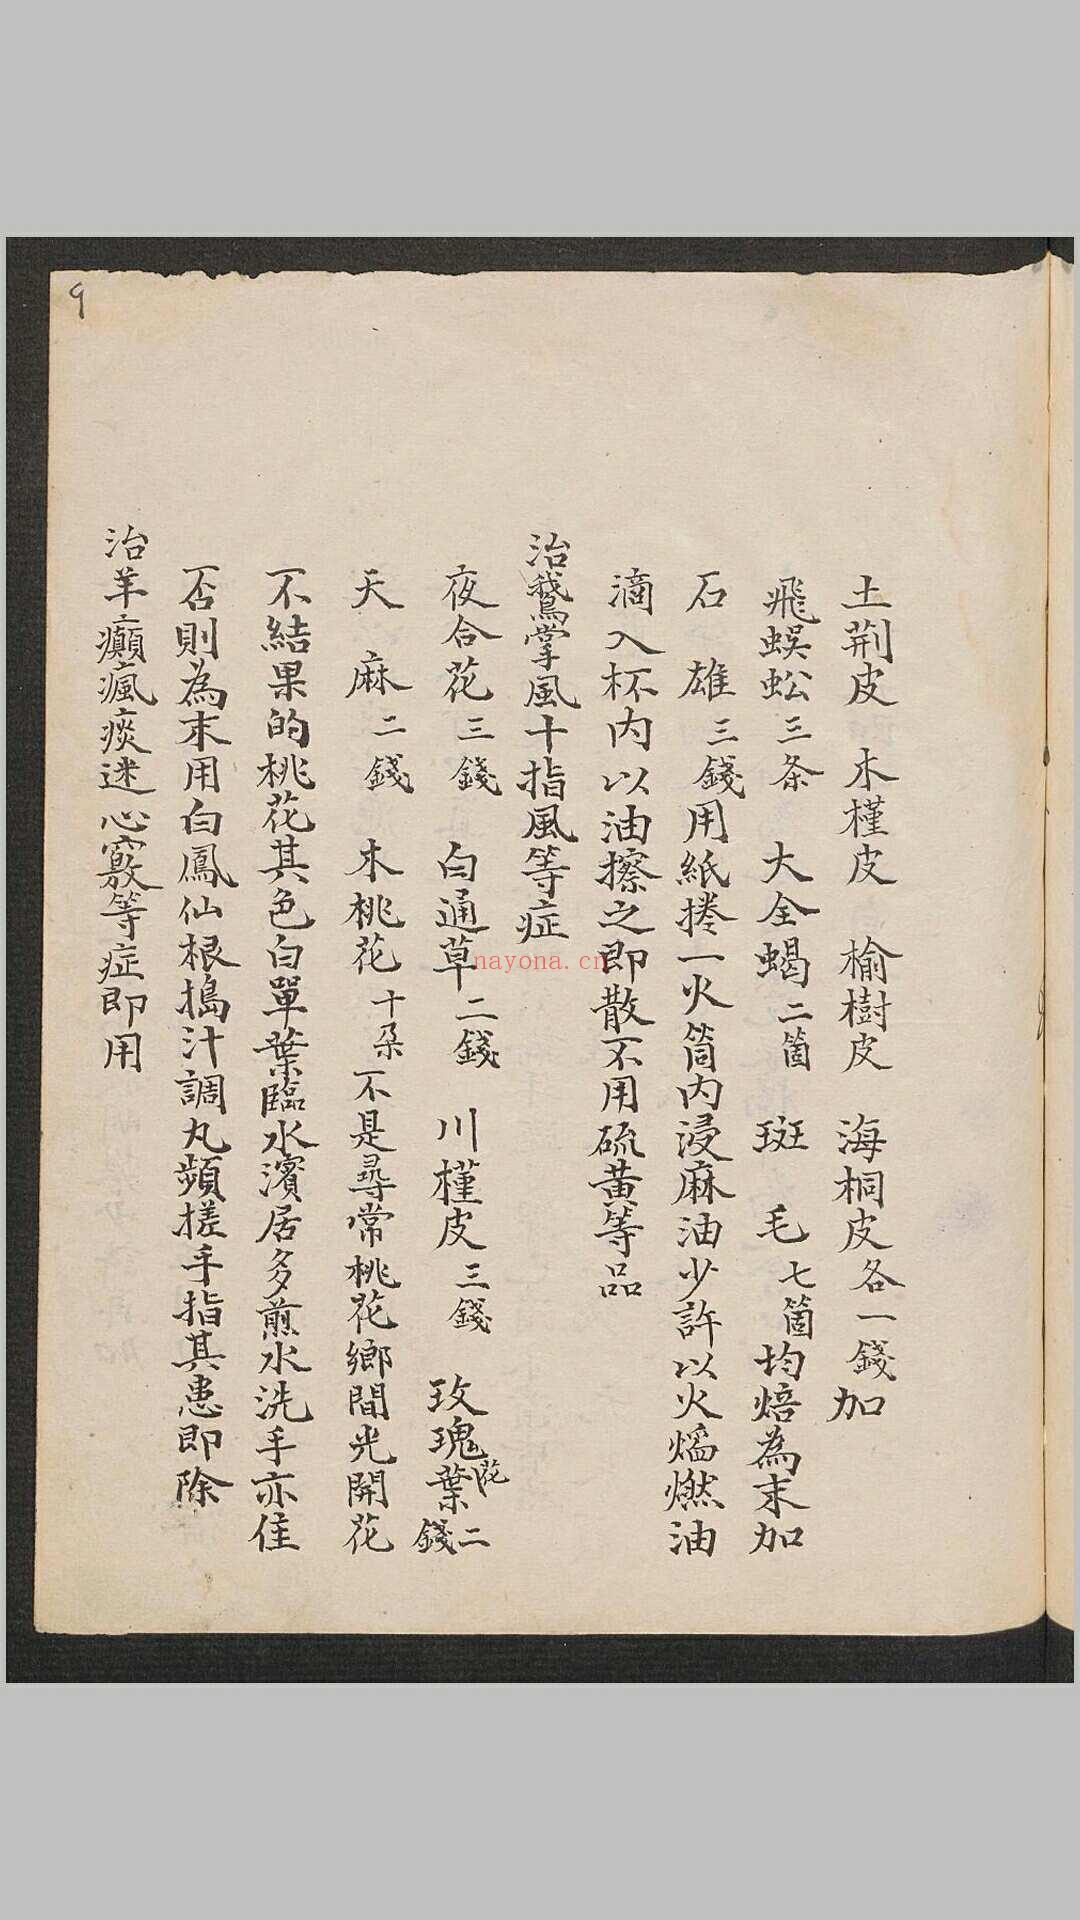 9
土荆皮　木槿皮　榆樹皮　海桐皮各一錢加
飛蜈蚣三条　大全蝎二箇　斑毛七箇均焙為末加
石雄三錢用紙捲一火筒内浸麻油少許以火爁燃油
滴入杯内以油擦之即散不用硫黄等品
治鵞掌風十指風等症
夜合花三錢　白通草二錢　川槿皮三錢　玫瑰花葉二錢
天麻二錢　木桃花十朶不是尋常桃花鄉間光開花
不結果的桃花其色白單葉臨水濱居多煎水洗手亦佳
否則為末用白鳳仙根搗汁調丸頻搓手指其患即除
治羊癲瘋痰迷心竅等症即用
nayona.cn